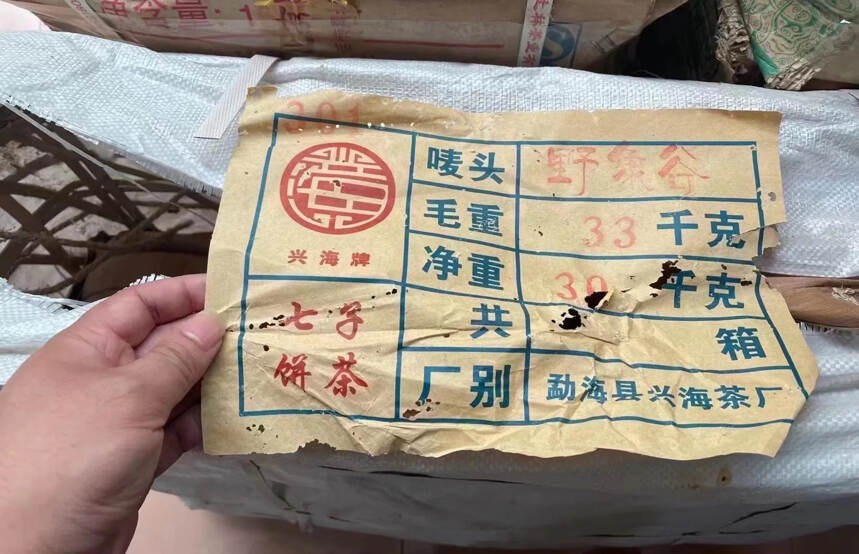 301
兴海牌
七子
饼茶
唛头 野象谷
毛重 33 千克
净重 30 千克
共 箱
厂别 勐海县兴海茶厂